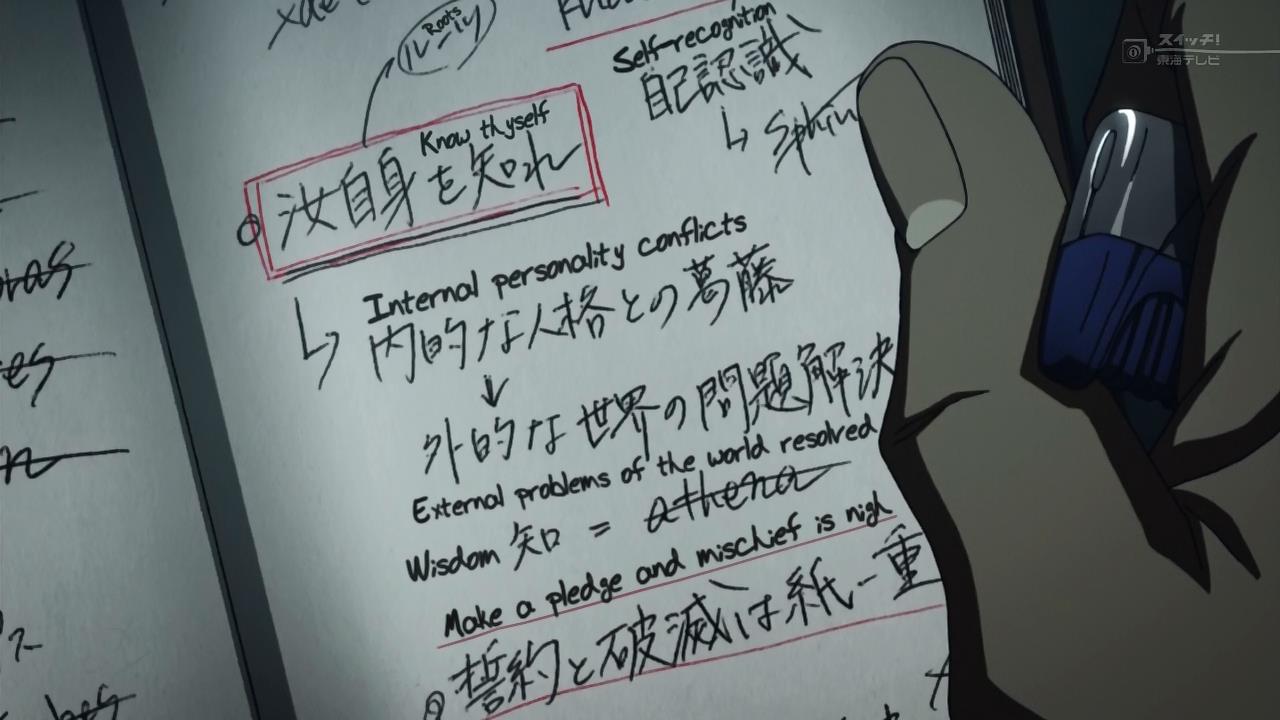 Roots
ルーツ
Self-recognition
自己認識
スイッチ!
東海テレビ
Know thyself
汝自身を知れ
Internal personality conflicts
内的な人格との葛藤
外的な世界の問題解決
External problems of the world resolved
Wisdom 知 = athena
Make a pledge and mischief is nigh
誓約と破滅は紙一重